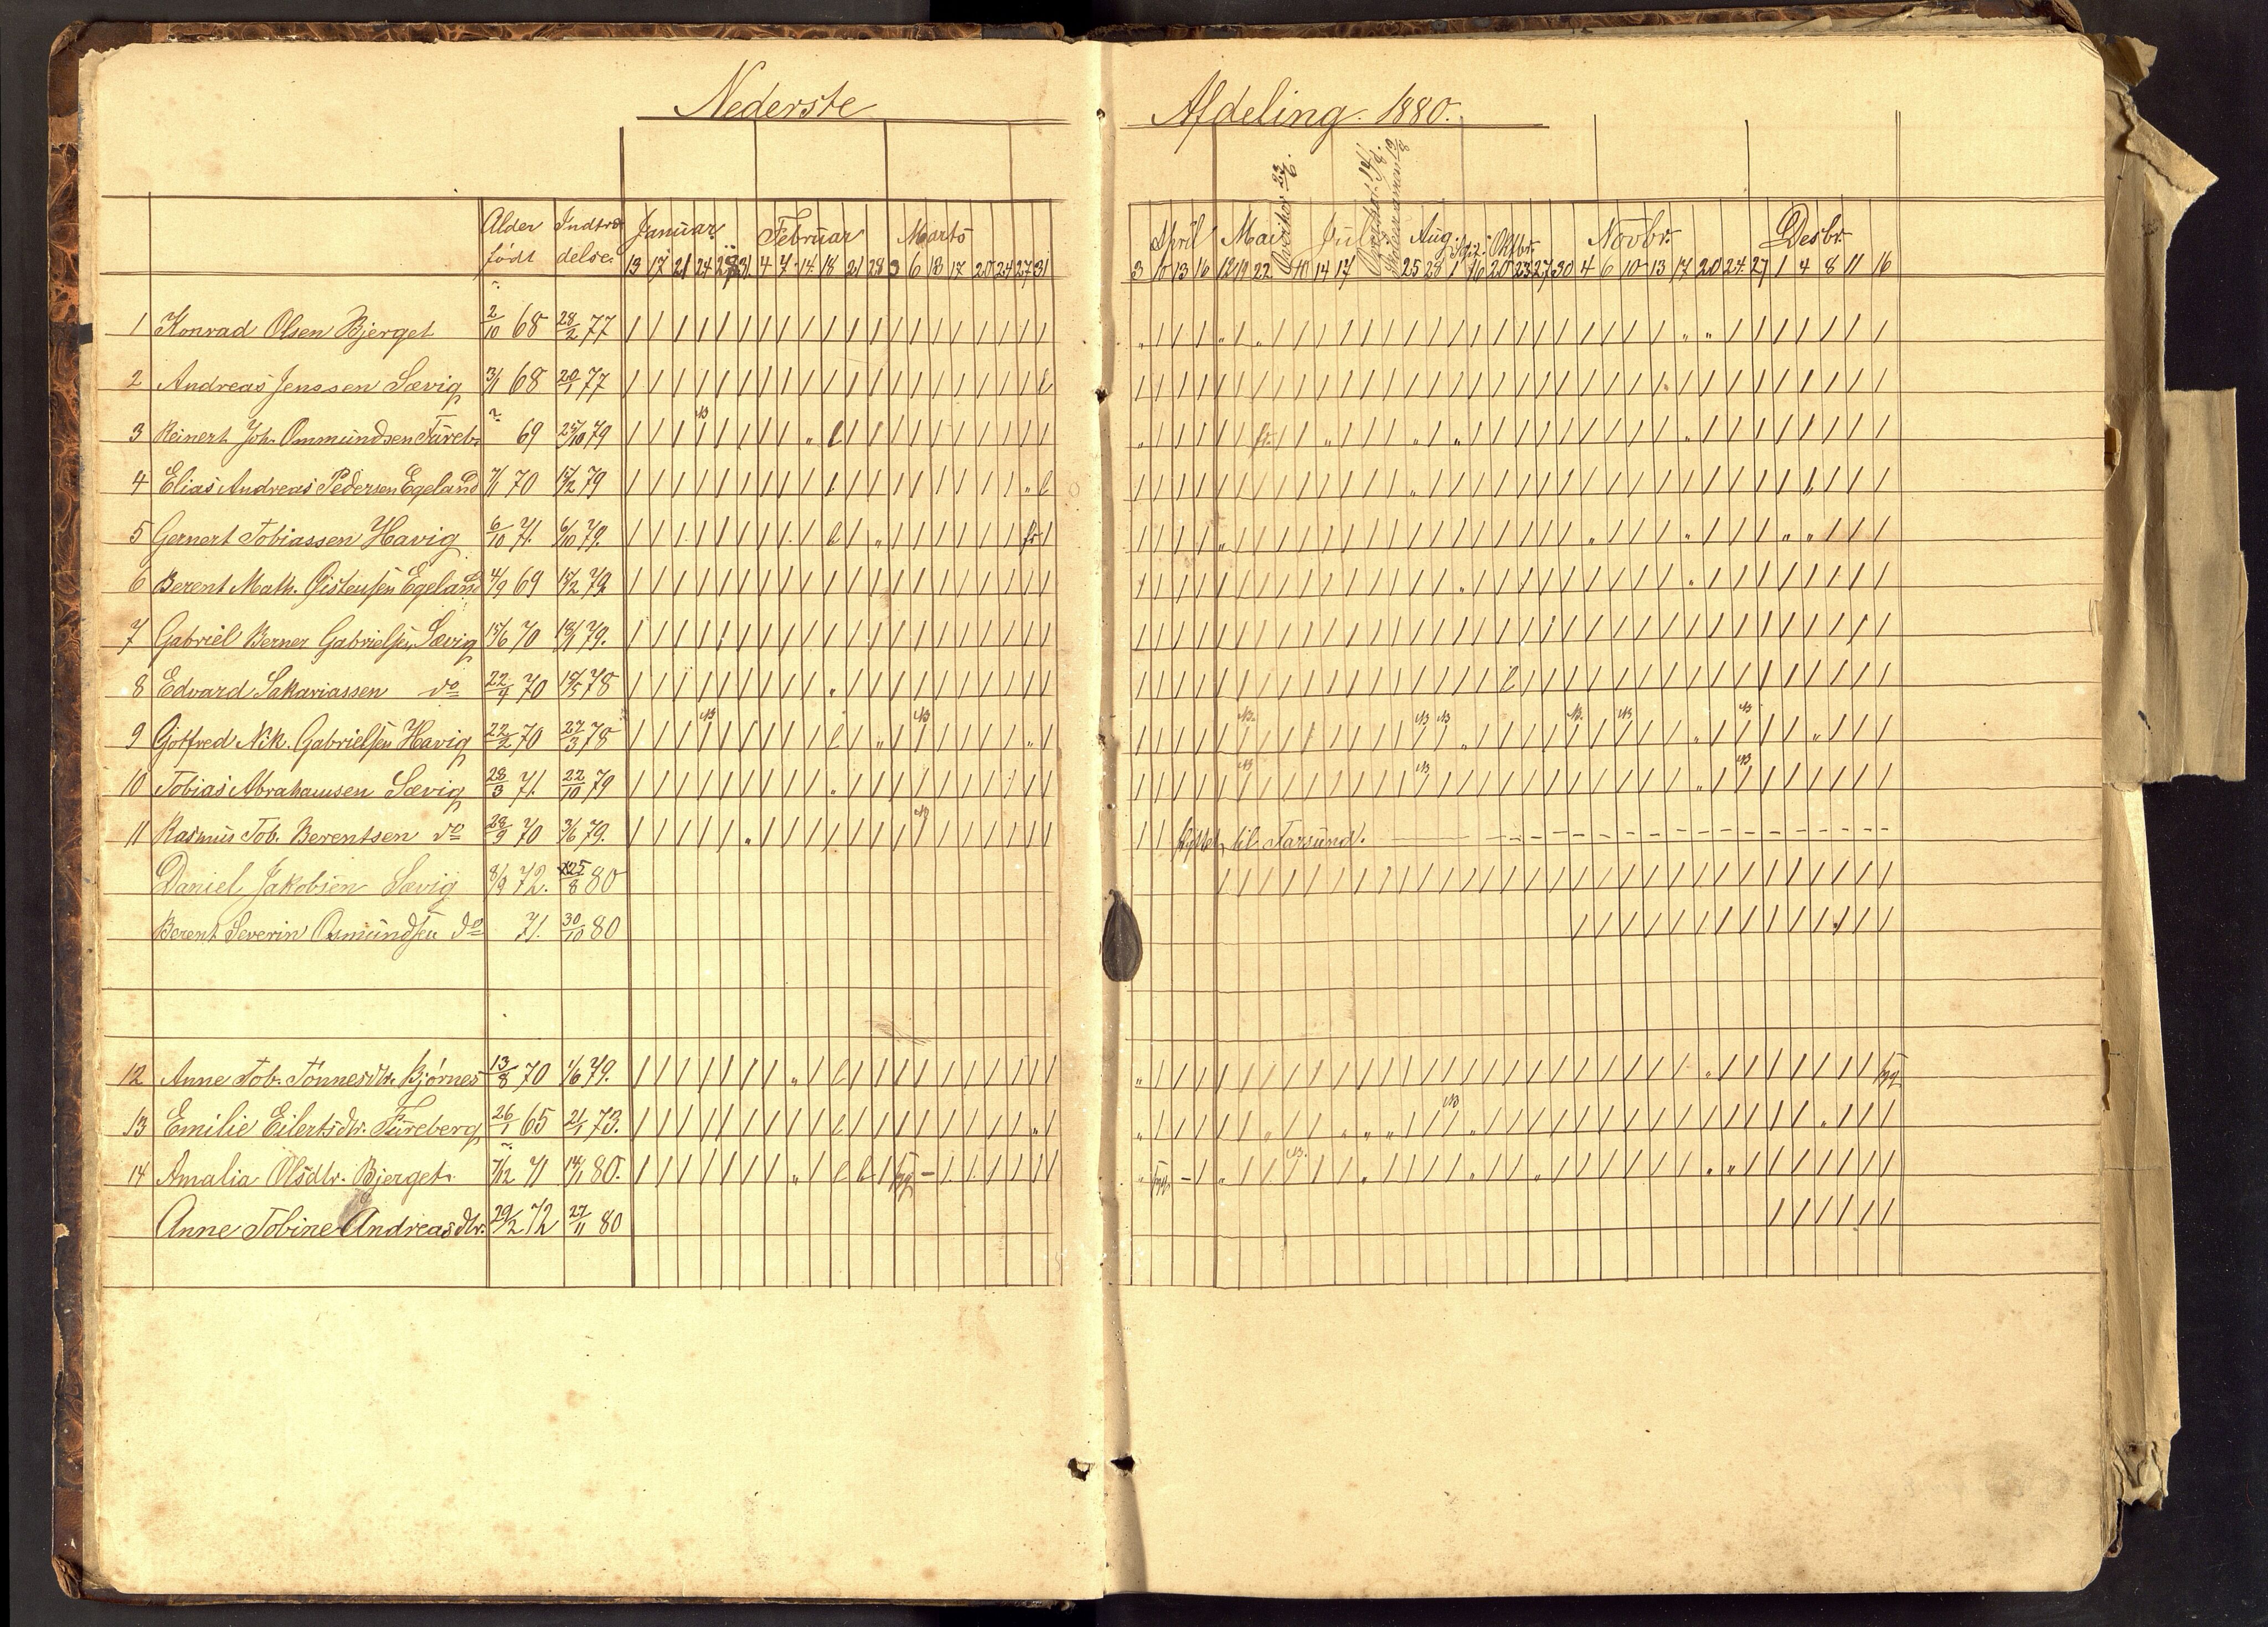 Nederste Afdeling. 1880.
Alder født Indtrædelse. Januar Februar Marts April Mai Juli Aug. Spt. Oktbr. Novbr. Desbr.
13 17 21 24 28 31 4 7 14 18 21 28 3 6 13 17 20 24 27 31 3 10 13 16 12 19 22 10 14 17 25 28 1 16 20 23 27 30 4 6 10 13 17 20 24 27 1 4 8 11 16
1 Konrad Olsen Bjerget 2/10 68 28/2 77
2 Andreas Jenssen Sævig 3/1 68 20/1 77
3 Reinert Joh. Ommundsen 69 25/10 79
4 Elias Andreas Pedersen Egeland 7/1 70 15/2 79
5 Gernert Tobiassen Havig 6/10 71. 6/10 79.
6 Berent Math. Egeland 4/9 69 15/2 79.
7 Gabriel Berner Gabrielsen Sævig 15/6 70 79.
8 Edvard Sakariassen do 22/4 70 15/5 78
9 Gotfred Nik. Gabrielsen Havig 22/2 70 27/3 78
10 Tobias Abrahamsen Sævig 28/3 71. 22/10 79
11 Rasmus Tob. Berentsen do 28/9 70 3/6 79. flyttet til Farsund.
Daniel Jakobsen Sævig 8/9 72. 25/8 80
Berent Severin Osmundsen do 71. 30/10 80
12 Anne Tob. Tønnesdtr. Bjørnes 13/8 70 1/6 79.
13 Emilie Eilertsdtr. Fureberg 26/1 65 21/1 73.
14 Amalia Olsdtr. Bjerget 7/12 71 14/1 80.
Anne Tobine Andreasdtr. 29/2 72 27/11 80